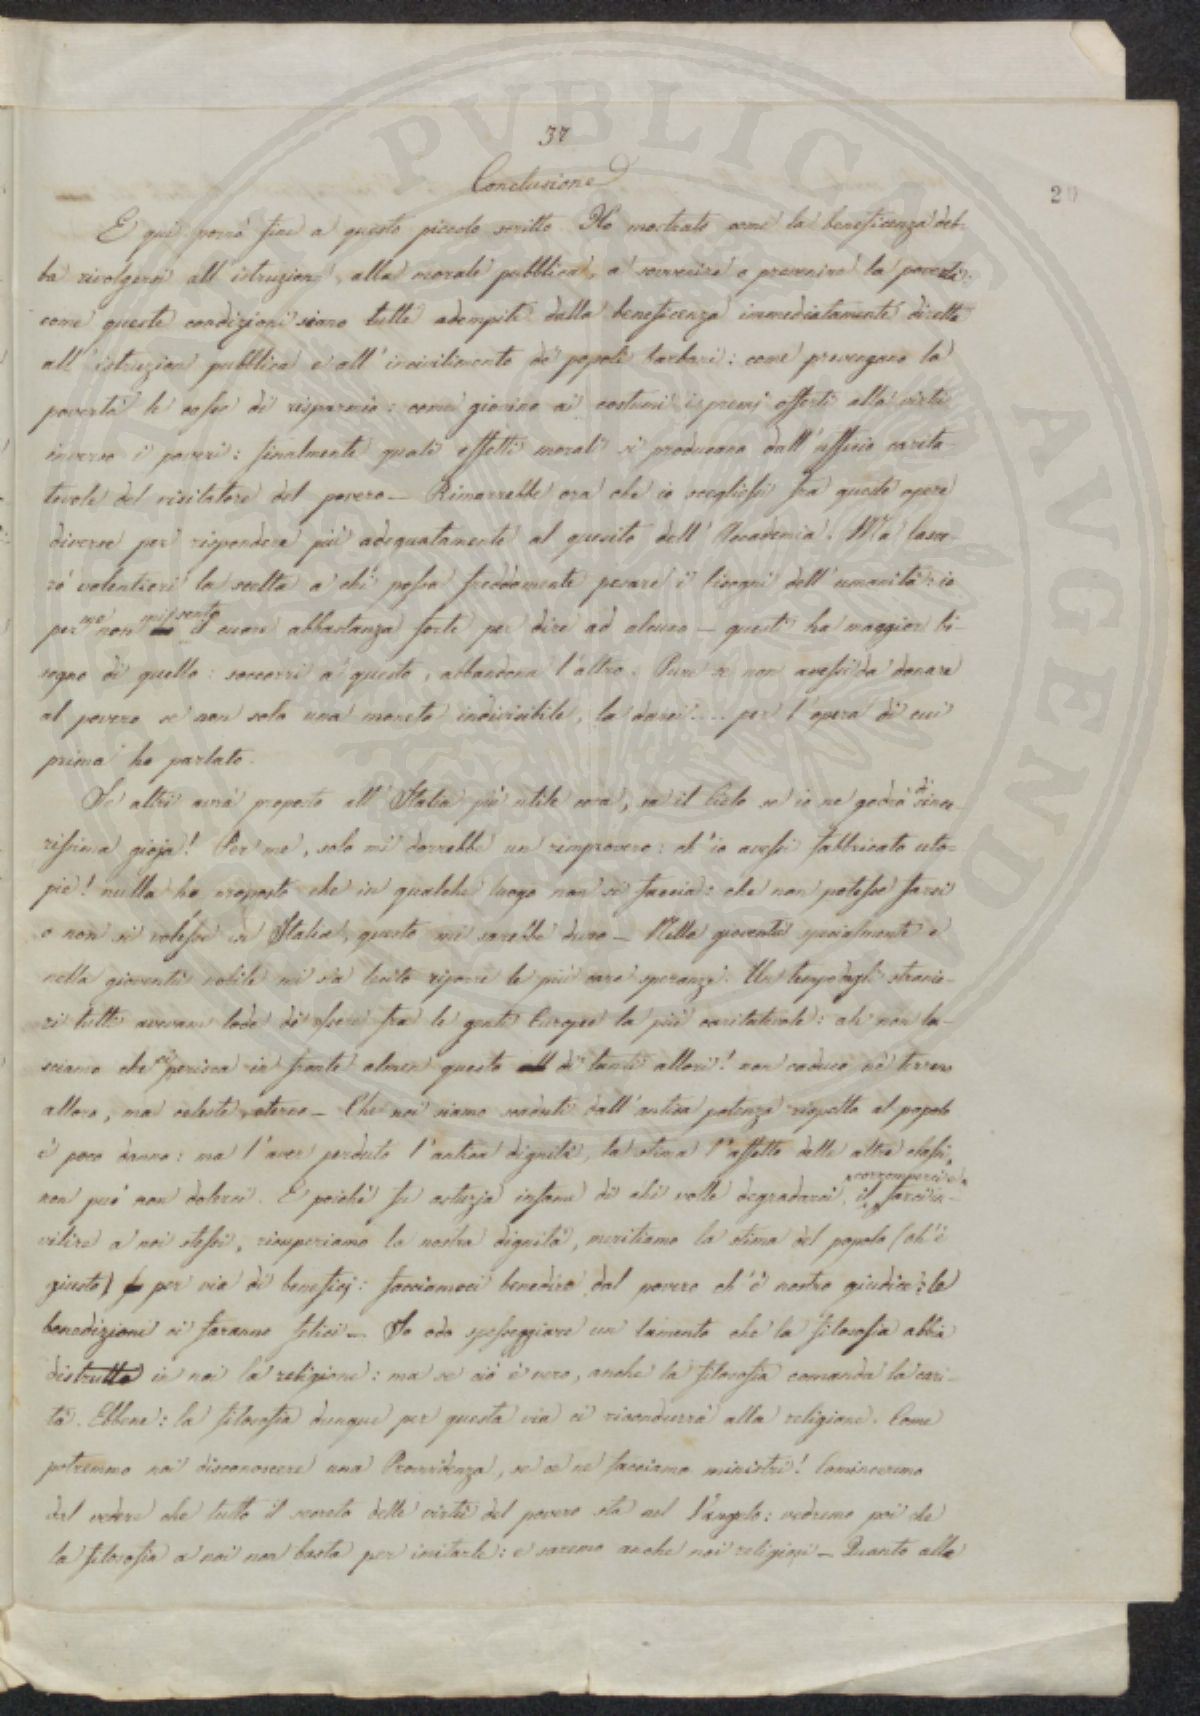 37
20
Conclusione
E qui porrò fine a questo piccolo scritto. Ho mostrato come la beneficenza deb-
ba rivolgersi all'istruzione, alla morale pubblica, a sovvenire e prevenire la povertà:
come queste condizioni siano tutte adempite dalla beneficenza immediatamente diretta
all'istruzion pubblica e all'incivilimento de' popoli barbari: come prevengano la
povertà le casse di risparmio: come giovino ai costumi i premj offerti alla virtù
inverso i poveri: finalmente quali effetti morali si producano dall'ufficio carita-
tevole del visitatore del povero — Rimarrebbe ora che io scegliessi fra queste opere
diverse per rispondere più adeguatamente al quesito dell'Accademia. Ma lasce-
rò volentieri la scelta a chi possa freddamente pesare i bisogni dell'umanità: io
per me non mi sento il cuore abbastanza forte per dire ad alcuno — questi ha maggior bi-
sogno di quello: soccorri a questo, abbandona l'altro. Pure se non avessi da donare
al povero se non sola una moneta indivisibile, la darei .... per l'opera di cui
prima ho parlato.
Se altri avrà proposto all'Italia più utile cosa, sa il Cielo se io ne godrò di since-
rissima gioja! Per me, solo mi dorrebbe un rimprovero: ch'io avessi fabbricato uto-
pie! nulla ho proposto che in qualche luogo non si faccia: che non potesse farsi
o non si volesse in Italia, questo mi sarebbe duro — Nella gioventù specialmente e
nella gioventù nobile mi sia lecito riporre le più care speranze. Un tempo dagli stranie-
ri tutti avevamo lode d'essere fra le genti Europee la più caritatevole: ah non la-
sciamo che ci perisca in fronte almen questo di tanti allori! non caduco nè terreno
alloro, ma celeste, eterno — Che noi siamo scaduti dall'antica potenza rispetto al popolo
è poco danno: ma l'aver perduto l'antica dignità, la stima l'affetto delle altre classi,
non può non dolerci. E poichè fu astuzia infame di chi volle degradarci, il corromperci e farci in-
vilire a noi stessi, ricuperiamo la nostra dignità, meritiamo la stima del popolo (ch'è
giusto) per via di beneficj: facciamoci benedire dal povero ch'è nostro giudice: le
benedizioni ci faranno felici — Io odo spesseggiare un lamento che la filosofia abbia
distrutto in noi la religione: ma se ciò è vero, anche la filosofia comanda la cari-
tà. Ebbene: la filosofia dunque per questa via ci ricondurrà alla religione. Come
potremmo noi disconoscere una Provvidenza, se ce ne facciamo ministri! Cominceremo
dal vedere che tutto il secreto delle virtù del povero sta nel Vangelo: vedremo poi che
la filosofia a noi non basta per imitarle: e saremo anche noi religiosi — Quanto alla